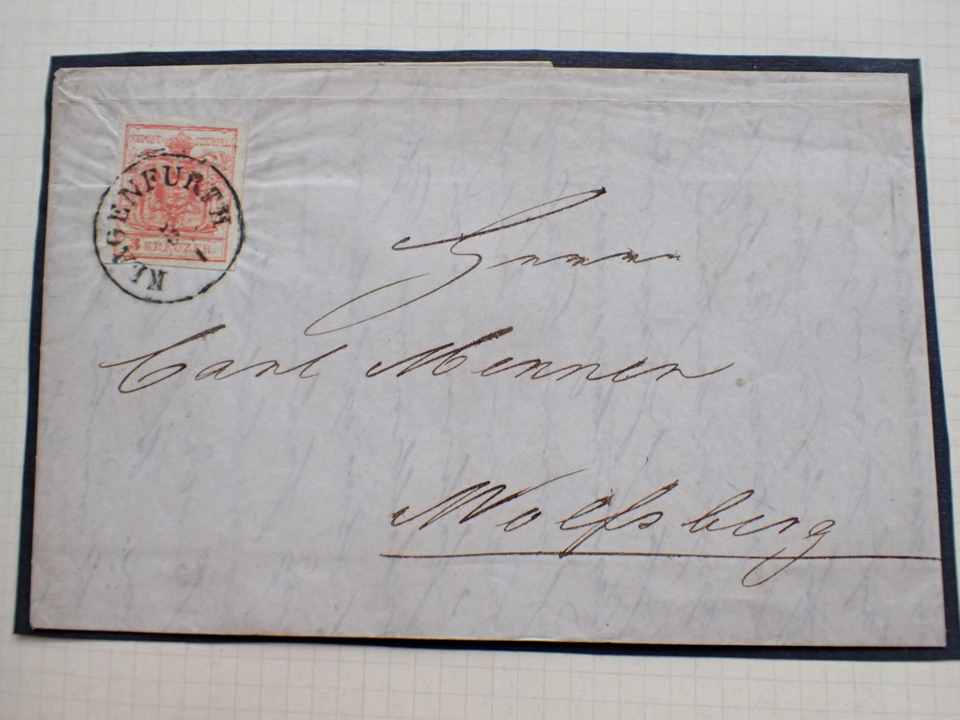 KLAGENFURTH
3 KREUZER
Herrn
Carl Menner
Wolfsberg